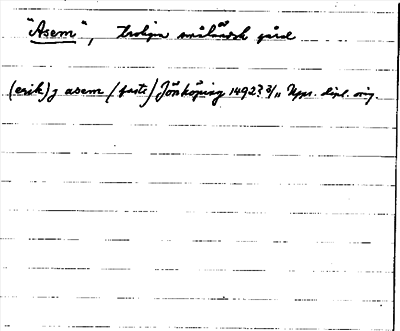 "Asem", trolign småländsk gård
(erik) j asem (faste) Jönköping 1492? 3/11 Upps. dipl. orig.